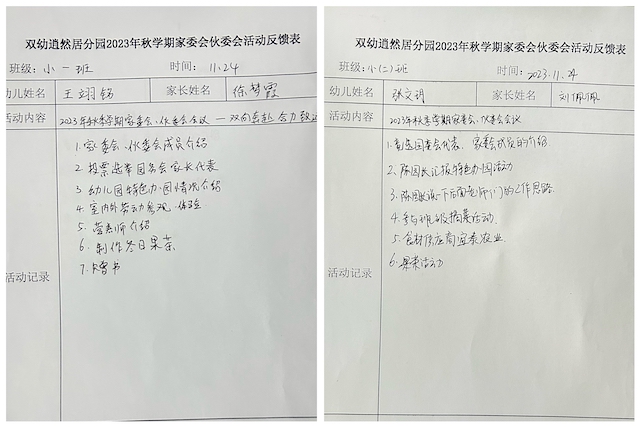 双幼逍然居分园2023年秋学期家委会伙委会活动反馈表
班级：小一班 时间：11.24
幼儿姓名 王翊铭 家长姓名 徐梦霞
活动内容 2023年秋季学期家委会、伙委会会议 — 双向奔赴 合力
1. 家委会、伙委会成员介绍
2. 投票选举园务会家长代表
3. 幼儿园特色办园情况介绍
4. 室内外劳动参观、体验
5. 营养师介绍
6. 制作冬日果茶
7. 赠书
活动记录
双幼逍然居分园2023年秋学期家委会伙委会活动反馈表
班级：小(二)班 时间：2023.11.24
幼儿姓名 张文玥 家长姓名 刘佩佩
活动内容 2023年秋季学期家委会、伙委会会议
1. 竞选园委会代表、家委会成员的介绍.
2. 陈园长汇报特色办园活动
3. 陈园长谈一下后面老师们的工作思路.
4. 参与班级揭幕活动.
5. 食材供应商宜泰农业.
6. 果茶活动
活动记录